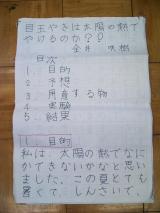 目玉やきは太陽の熱で
やけるのか??
金井 咲樹
目次
1. 目的
2. 予想
3. 用意する物
4. 実験
5. 結果
1. 目的
私は、太陽の熱でなに
かできないかなと思い
ました。この夏とても
暑くて、しんさいで、